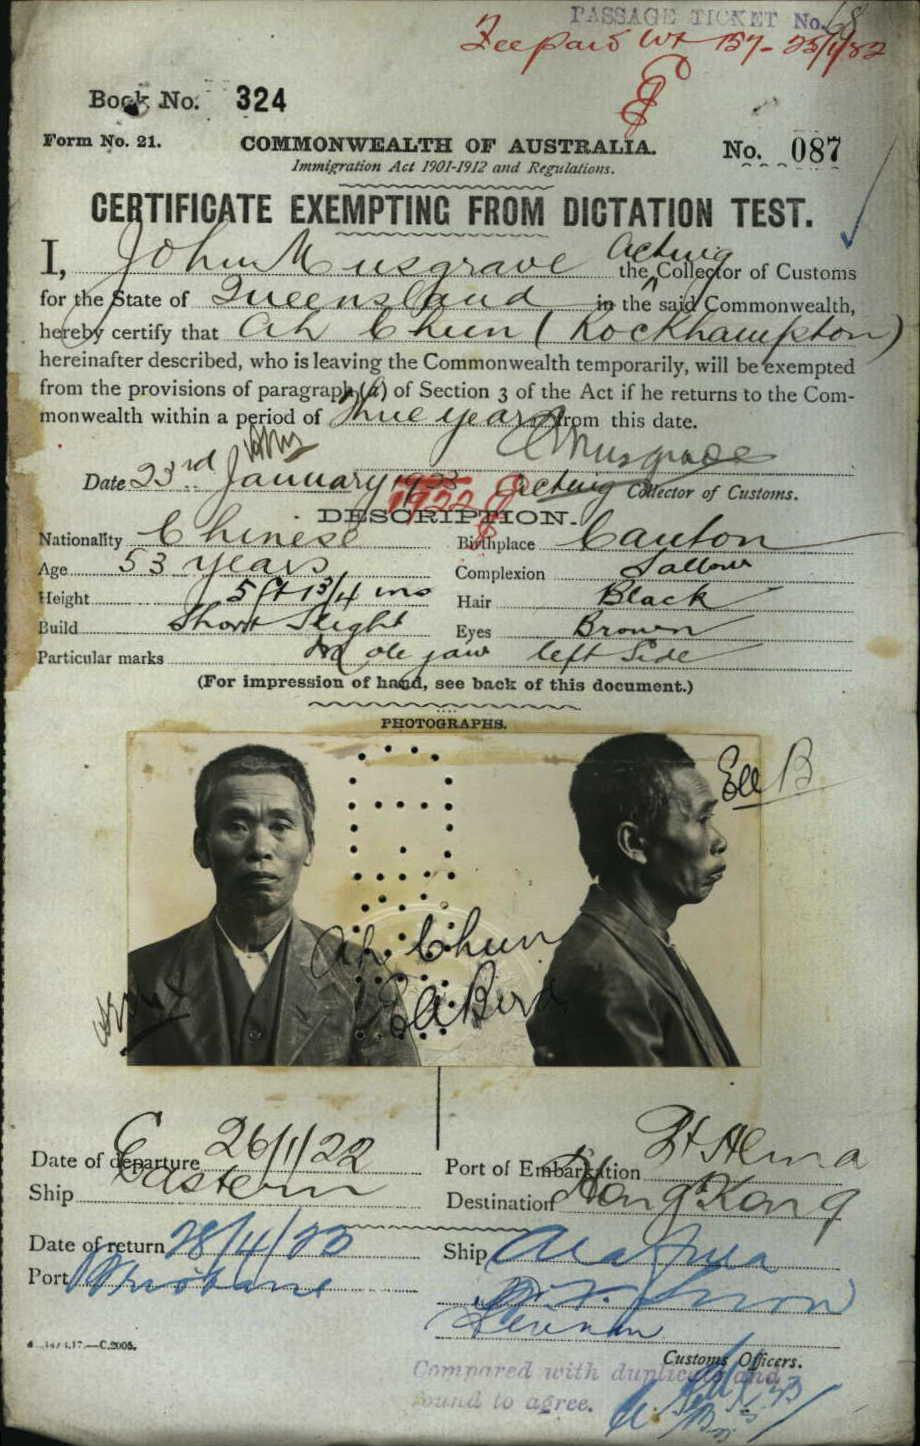 PASSAGE TICKET No. 68
Fee paid
Book No. 324
Form No. 21.
COMMONWEALTH OF AUSTRALIA.
No. 087
Immigration Act 1901-1912 and Regulations.
CERTIFICATE EXEMPTING FROM DICTATION TEST.
I, John Musgrave Acting the Collector of Customs
for the State of Queensland in the said Commonwealth,
hereby certify that Ah Chun (Rockhampton)
hereinafter described, who is leaving the Commonwealth temporarily, will be exempted
from the provisions of paragraph (a) of Section 3 of the Act if he returns to the Com-
monwealth within a period of three years from this date.
Musgrave
Date 23rd January 1922 Acting Collector of Customs.
DESCRIPTION.
Nationality Chinese Birthplace Canton
Age 53 years Complexion Sallow
Height 5 ft 1 3/4 ins Hair Black
Build Short Slight Eyes Brown
Particular marks Mole jaw left Side
(For impression of hand, see back of this document.)
PHOTOGRAPHS.
Ah Chun
Date of departure 26/1/22 Port of Embarkation
Ship Eastern Destination Hong Kong
Date of return 28/4/23 Ship
Port Brisbane
C.2005.
Customs Officers.
Compared with duplicate and
found to agree.